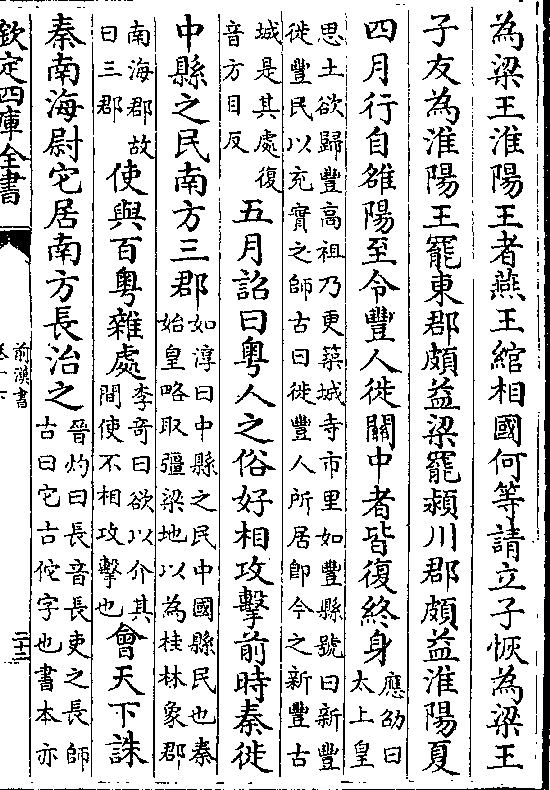 為梁王淮陽王者燕王綰相國何等請立子恢為梁王
子友為淮陽王罷東郡頗益梁罷潁川郡頗益淮陽夏
四月行自雒陽至令豐人徙關中者皆復終身應劭曰太上皇
思土欲歸豐高祖乃更築城寺市里如豐縣號曰新豐
徙豐民以充實之師古曰徙豐人所居即今之新豐古
城是其處復音方目反五月詔曰粵人之俗好相攻擊前時秦徙
中縣之民南方三郡如淳曰中縣之民中國縣民也秦始皇略取彊梁地以為桂林象郡
南海郡故曰三郡使與百粵雜處李奇曰欲以介其間使不相攻擊也會天下誅
秦南海尉它居南方長治之晉灼曰長音長吏之長師古曰它古佗字也書本亦
欽定四庫全書
前漢書
卷一下
二十三